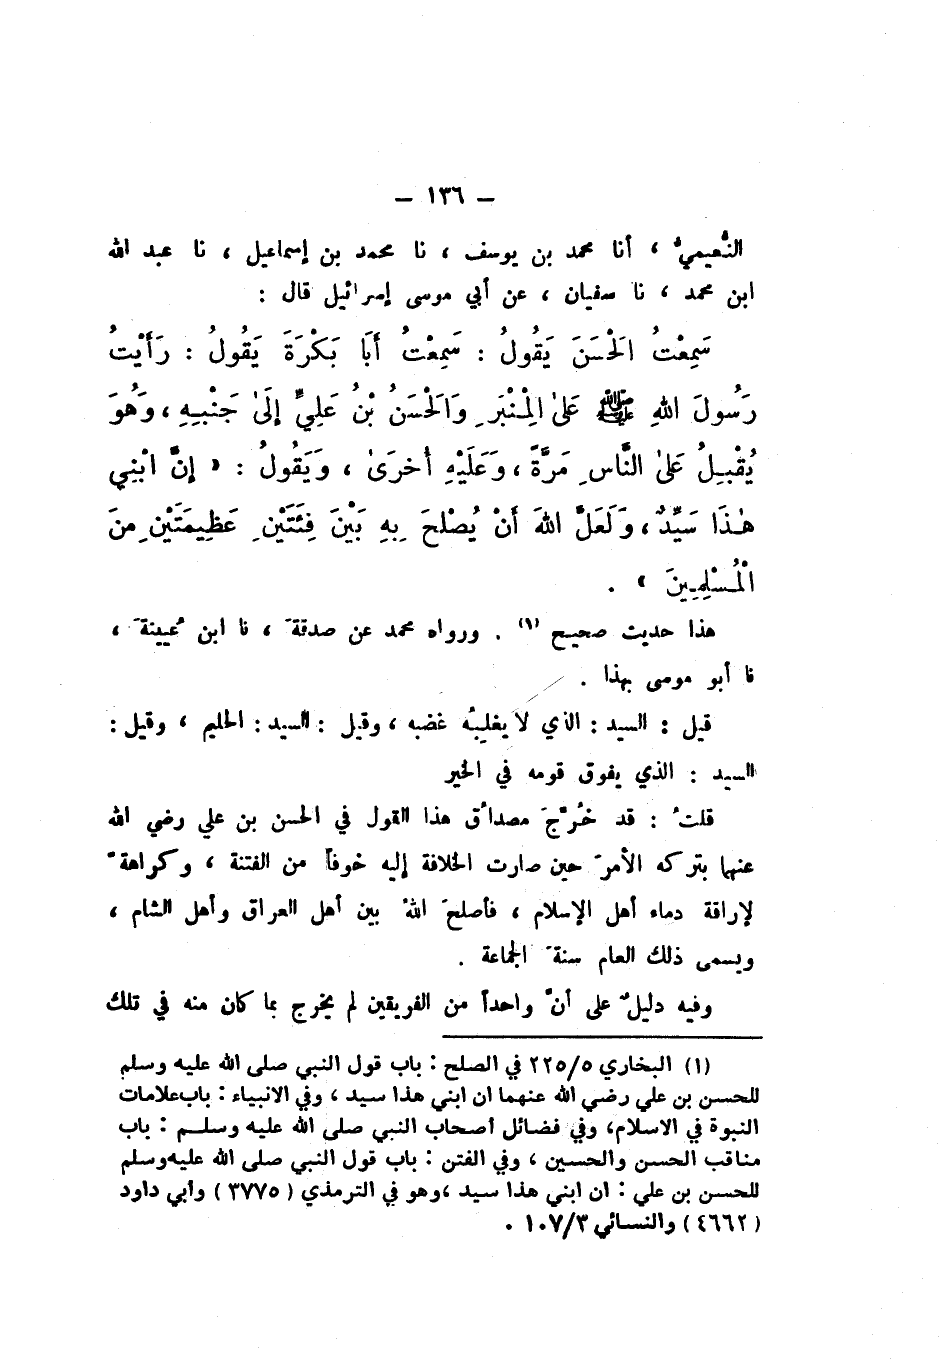 – ١٣٦ –
النُّعيميُّ ، أنا محمد بن يوسف ، نا محمد بن إسماعيل ، نا عبد الله
ابن محمد ، نا سفيان ، عن أبي موسى إسرائيل قال :
سَمِعْتُ الْحَسَنَ يَقُولُ : سَمِعْتُ أَبَا بَكْرَةَ يَقُولُ : رَأَيْتُ
رَسُولَ اللهِ ﷺ عَلَى الْمِنْبَرِ وَالْحَسَنُ بْنُ عَلِيٍّ إِلَى جَنْبِهِ ، وَهُوَ
يُقْبِلُ عَلَى النَّاسِ مَرَّةً ، وَعَلَيْهِ أُخرَىٰ ، وَيَقُولُ : « إِنَّ ابْنِي
هٰذَا سَيِّدٌ ، وَلَعَلَّ اللهَ أَنْ يُصْلِحَ بِهِ بَيْنَ فِئَتَيْنِ عَظِيمَتَيْنِ مِنَ
الْمُسْلِمِينَ » .
هذا حديث صحيح (١) . ورواه محمد عن صدقةَ ، نا ابن عُيينةَ ،
نا أبو موسى بهذا .
قيل : السيد : الذي لا يغلبُه غضبه ، وقيل : السيد : الحليم ، وقيل :
السيد : الذي يفوق قومه في الخير
قلتُ : قد خُرِّجَ مصداُق هذا القول في الحسن بن علي رضي الله
عنهما بتركه الأمرَ حين صارت الخلافة إليه خوفاً من الفتنة ، وكراهةً
لإراقة دماء أهل الإسلام ، فأصلحَ اللهُ بين أهل العراق وأهل الشام ،
ويسمى ذلك العام سنةَ الجماعة .
وفيه دليلٌ على أنَّ واحداً من الفريقين لم يخرج بما كان منه في تلك
(١) البخاري ٢٢٥/٥ في الصلح : باب قول النبي صلى الله عليه وسلم
للحسن بن علي رضي الله عنهما ان ابني هذا سيد ، وفي الانبياء : باب علامات
النبوة في الاسلام، وفي فضائل أصحاب النبي صلى الله عليه وسلم : باب
مناقب الحسن والحسين ، وفي الفتن : باب قول النبي صلى الله عليه وسلم
للحسن بن علي : ان ابني هذا سيد ،وهو في الترمذي ( ٣٧٧٥ ) وأبي داود
( ٤٦٦٢ ) والنسائي ١٠٧/٣ .